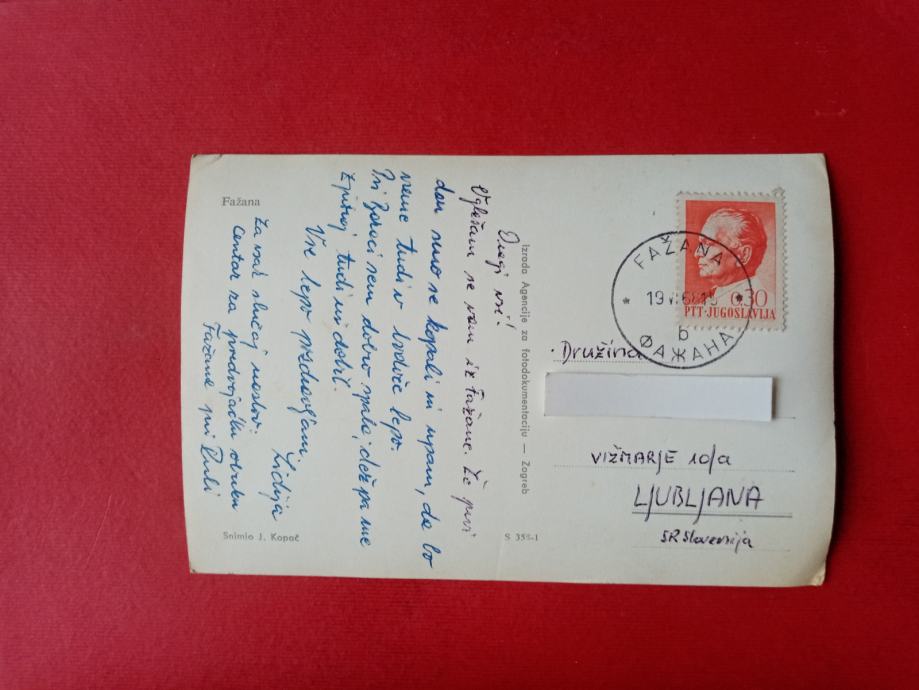 Fažana
Dragi vsi!
Oglašam se vam iz Fažane. Že prvi
dan smo se kopali in upam, da bo
vreme tudi v bodoče lepo.
Pri Zoroci sem dobro spala, dež pa me
zjutraj tudi ni dobil.
Vse lepo pozdravljam
Lidija
Za vsak slučaj naslov:
Centar za predvojačku obuku
Fažana pri Puli
Snimio J. Kopač
Izrada Agencije za fotodokumentaciju — Zagreb
S 355-1
FAŽANA
19 VI 68 15
b
ФАЖАНА
0.30
PTT·JUGOSLAVIJA
Družina
VIŽMARJE 10/a
LJUBLJANA
SR Slovenija